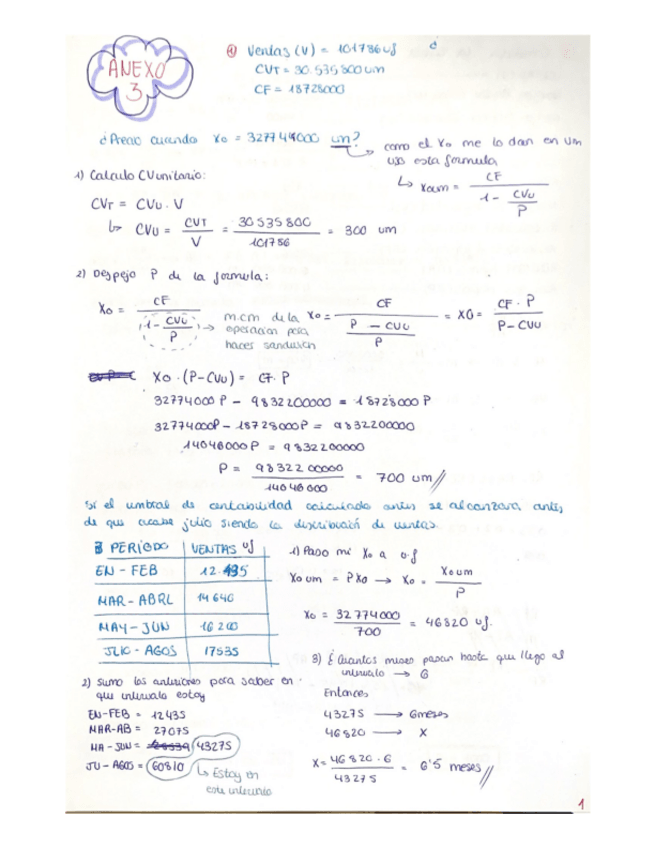 ANEXO
3
① Ventas (V) = 101786 uf
CVT = 30.535800 um
CF = 18728000
¿Precio cuando Xo = 32774000 um?
como el Xo me lo dan en um
uso esta formula
↳ Xoum = CF / 1 - CVu/P
1) Calculo CVunitario:
CVT = CVu . V
↳ CVu = CVT / V = 30535800 / 101786 = 300 um
2) Despejo P de la formula:
Xo = CF / 1 - CVu/P
m.c.m de la operacion para hacer sandwich
Xo = CF / P - CVu / P = XO = CF . P / P - CVu
XO . (P - CVu) = CF . P
32774000 P - 9832200000 = 18728000 P
32774000P - 18728000P = 9832200000
14046000 P = 9832200000
P = 9832200000 / 14046000 = 700 um
Si el umbral de rentabilidad calculado antes se alcanzara antes
de que acabe julio siendo la distribución de ventas.
PERIODO VENTAS uf
EN - FEB 12.435
MAR - ABRL 14640
MAY - JUN 16200
JLIO - AGOS 17535
1) Paso mi Xo a u.f
Xo um = P Xo → Xo = Xo um / P
Xo = 32774000 / 700 = 46820 uf.
2) Sumo los anteriores para saber en
que intervalo estoy
EN-FEB = 12435
MAR-AB = 27075
MA - JUN = 43275
JU - AGOS = 60810
↳ Estoy en
este intervalo
3) ¿Cuantos meses pasan hasta que llego al
intervalo → 6
Entonces
43275 → 6 meses
46820 → X
X = 46820 . 6 / 43275 = 6'5 meses
1